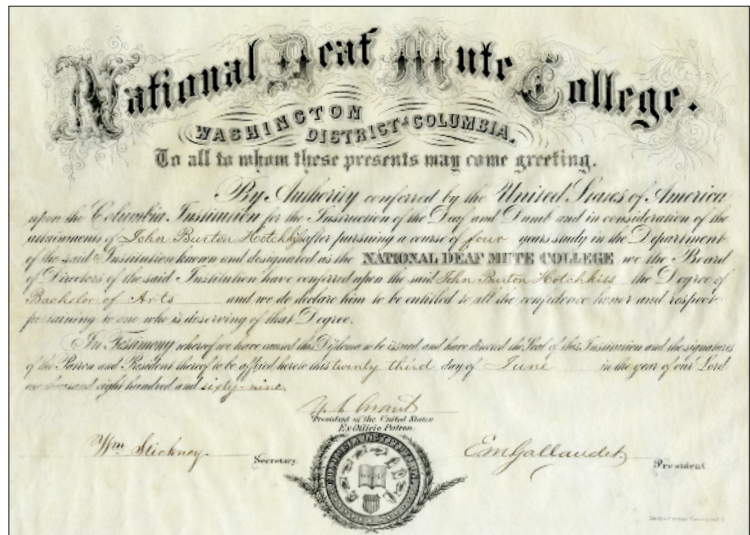 National Deaf Mute College.
WASHINGTON
DISTRICT OF COLUMBIA.
To all to whom these presents may come greeting.
By Authority conferred by the United States of America
upon the Columbia Institution for the Instruction of the Deaf and Dumb and in consideration of the
attainments of John Burton Hotchkiss after pursuing a course of four years study in the Department
of the said Institution known and designated as the NATIONAL DEAF MUTE COLLEGE we the Board
of Directors of the said Institution have conferred upon the said John Burton Hotchkiss the Degree of
Bachelor of Arts and we do declare him to be entitled to all the confidence honor and respect
pertaining to one who is deserving of that Degree.
In Testimony whereof we have caused this Diploma to be issued, and have directed the Seal of this Institution and the signatures
of the Patron and President thereof to be affixed hereto this twenty third day of June in the year of our Lord
one thousand eight hundred and sixty-nine.
U. S. Grant
President of the United States
Ex-Officio Patron.
Wm Stickney. Secretary. E M Gallaudet President